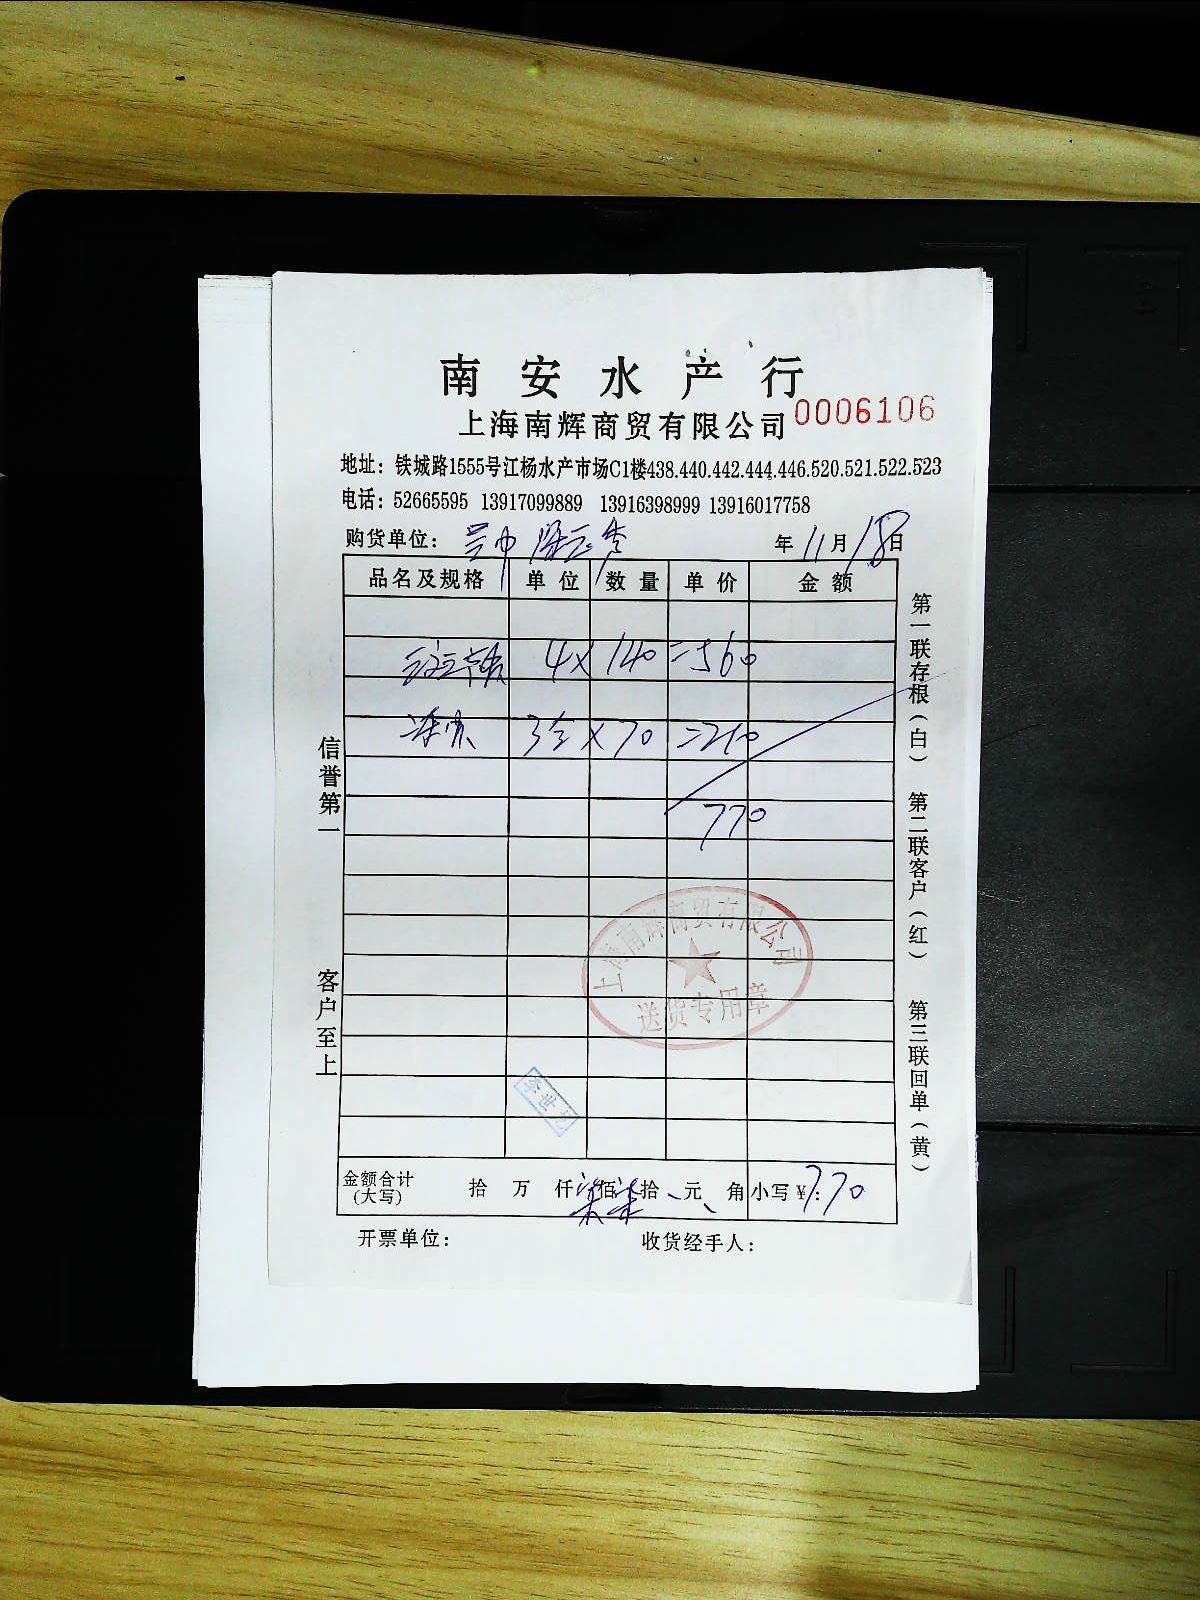 南安水产行
上海南辉商贸有限公司 0006106
地址：铁城路1555号江杨水产市场C1楼438.440.442.444.446.520.521.522.523
电话：52665595 13917099889 13916398999 13916017758
购货单位： 年 11 月 18 日
品名及规格 单位 数量 单价 金额
4 × 140 = 560
3 × 70 = 210
770
上海南辉商贸有限公司
送货专用章
李世
金额合计（大写） 拾 万 仟 柒佰 柒拾 元 角 小写￥：770
开票单位： 收货经手人：
信誉第一
客户至上
第一联存根（白）
第二联客户（红）
第三联回单（黄）